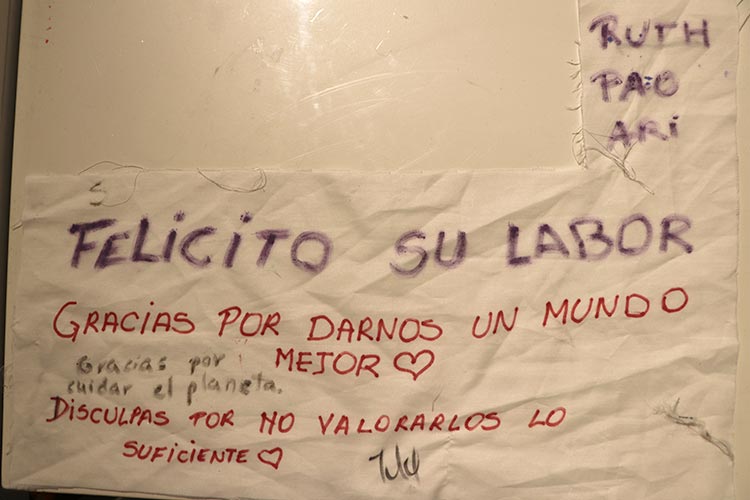 RUTH
PAO
ARi
FELiCiTO SU LABOR
GRACiAS POR DARNOS UN MUNDO
MEJOR
Gracias por
cuidar el planeta.
DiSCULPAS POR NO VALORARLOS LO
SUFiCiENTE